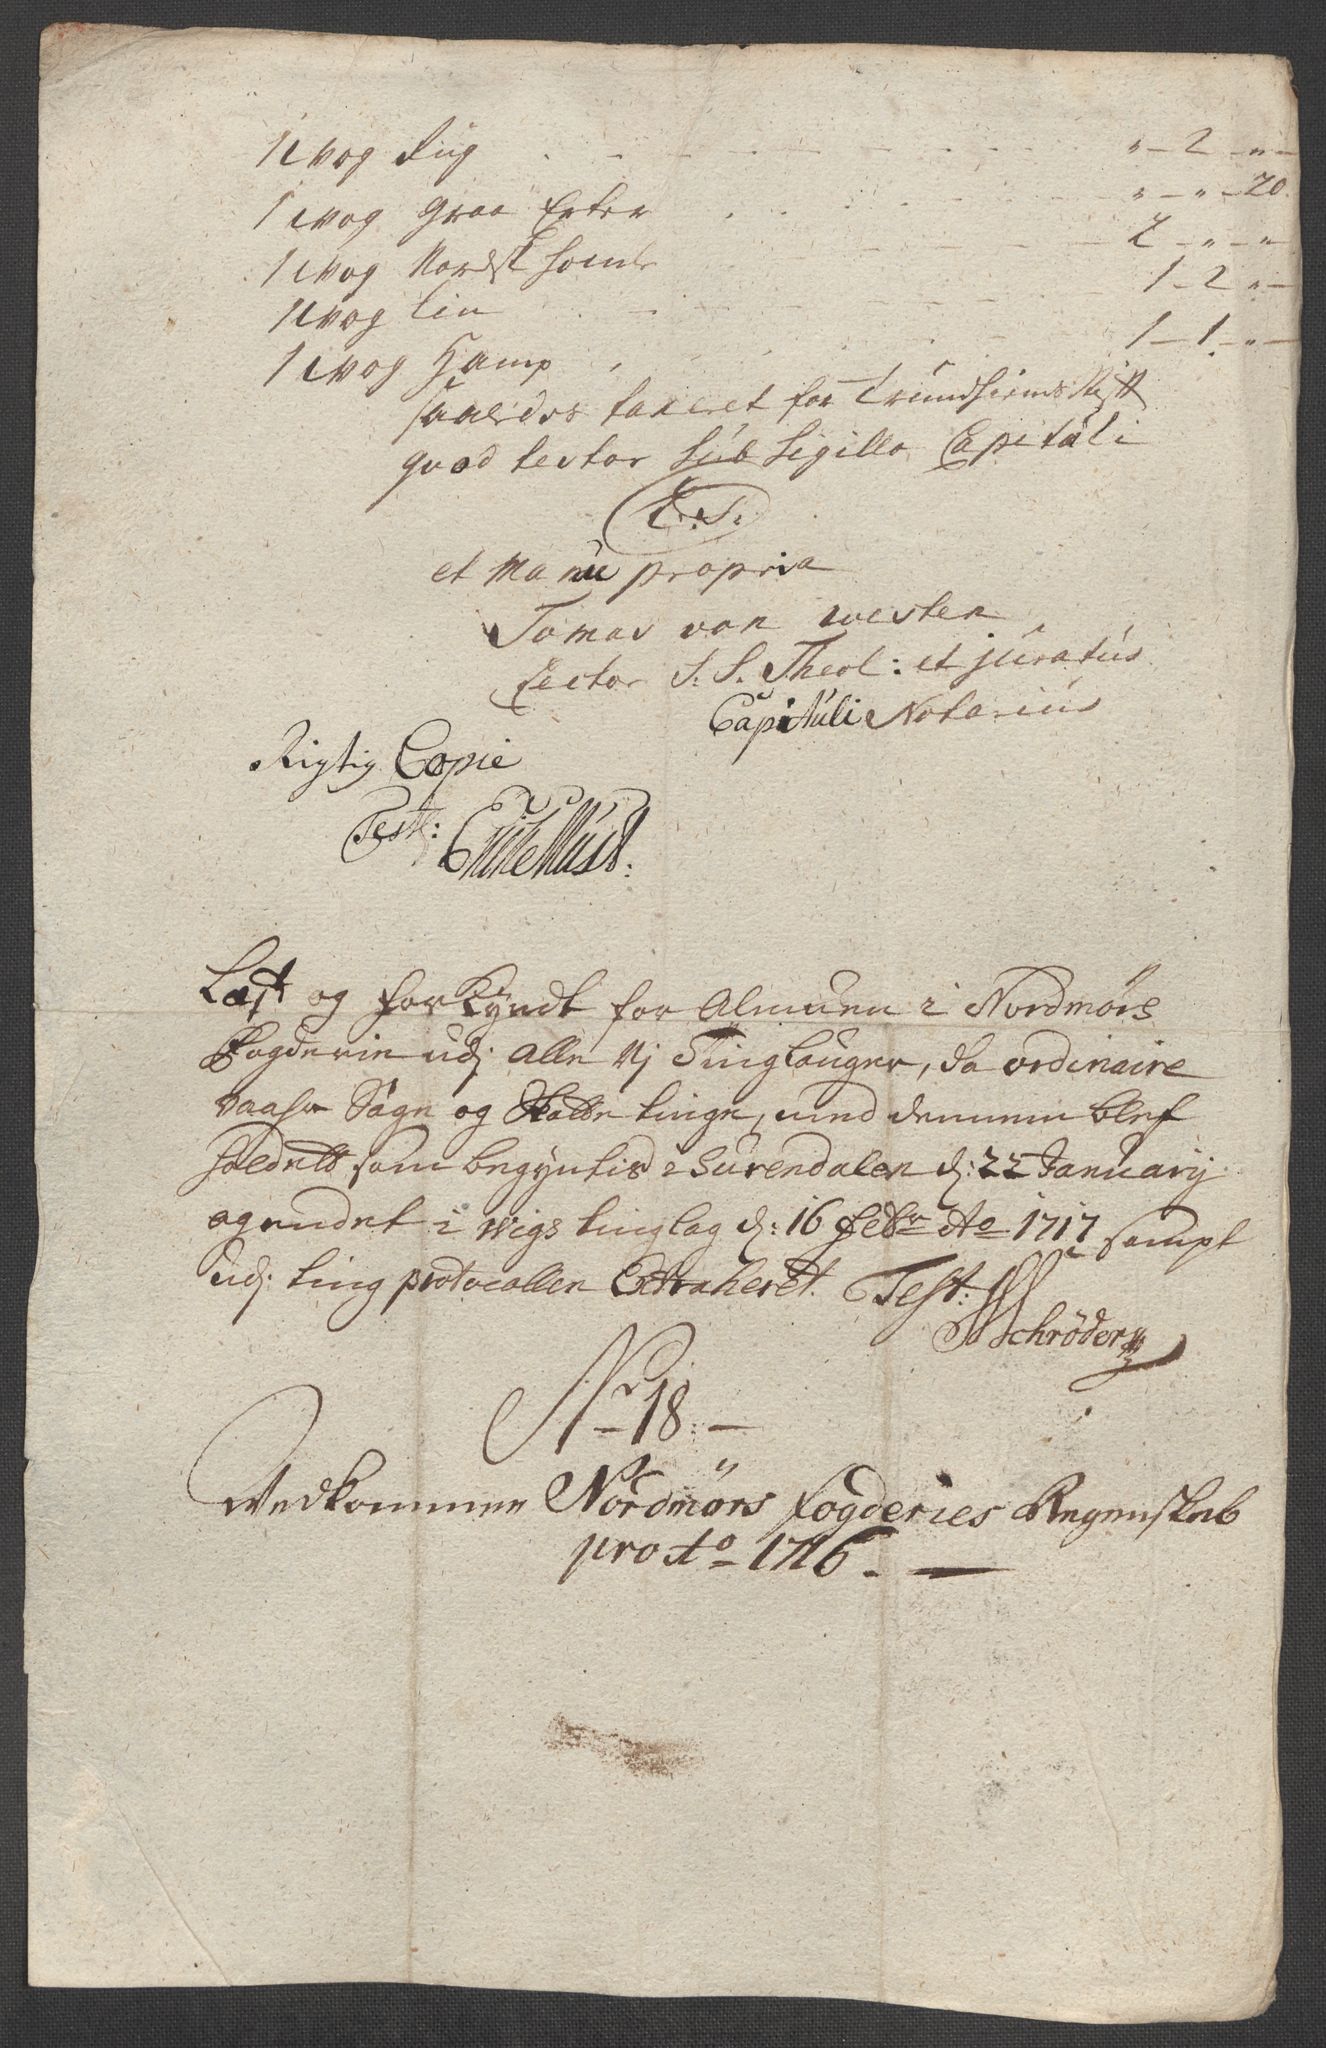 1 wog Rug . . . . „ – 2 – „ –
1 wog graa Erter . . . . „ – „ – 20
1 wog Nordsk homle . . . . 2 – „ – „
1 wog Lin . . . . 1 – 2 „ –
1 wog Hamp . . . . 1 – 1 – „ –
saaledes taxeret for Trundhiems Stift
qvod testor sub Sigillo Capituli
L. S.
et Manu propria
Tomas von Westen
Lector S. S. Theol: et juratus
Capituli Notarius
Rigtig Copie
Test:
Læst og forkyndt for Almuen i Nordmørs
Fogderie udj alle Tinglauger, da ordinaire
Sage og Skatte tinge, med dennem blef
holdett som begyntis i Surendalen d: 22 January
og endet i Wigs tinglag d: 16 febr Ao 1717 sampt
udj ting protocollen Extraheret. Test:
Schrøder
No 18. –
Vedkommer Nordmørs fogderies Regenskab
pro Ao 1716. –